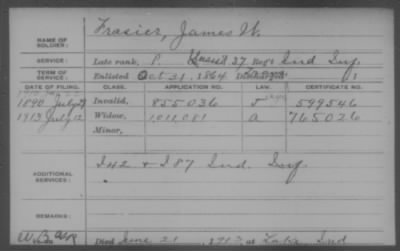 NAME OF SOLDIER: Frasier, James W.
SERVICE: Late rank, P. 37 Regt Ind Inf.
TERM OF SERVICE: Enlisted Oct 31, 1864
DATE OF FILING. CLASS. APPLICATION NO. LAW. CERTIFICATE NO.
1890 July Invalid, 855036 599546
1913 July 12 Widow, 1011081 a 765026
Minor,
ADDITIONAL SERVICES: I 42 & I 87 Ind. Inf.
REMARKS:
Died June 21, 1913, at Ind